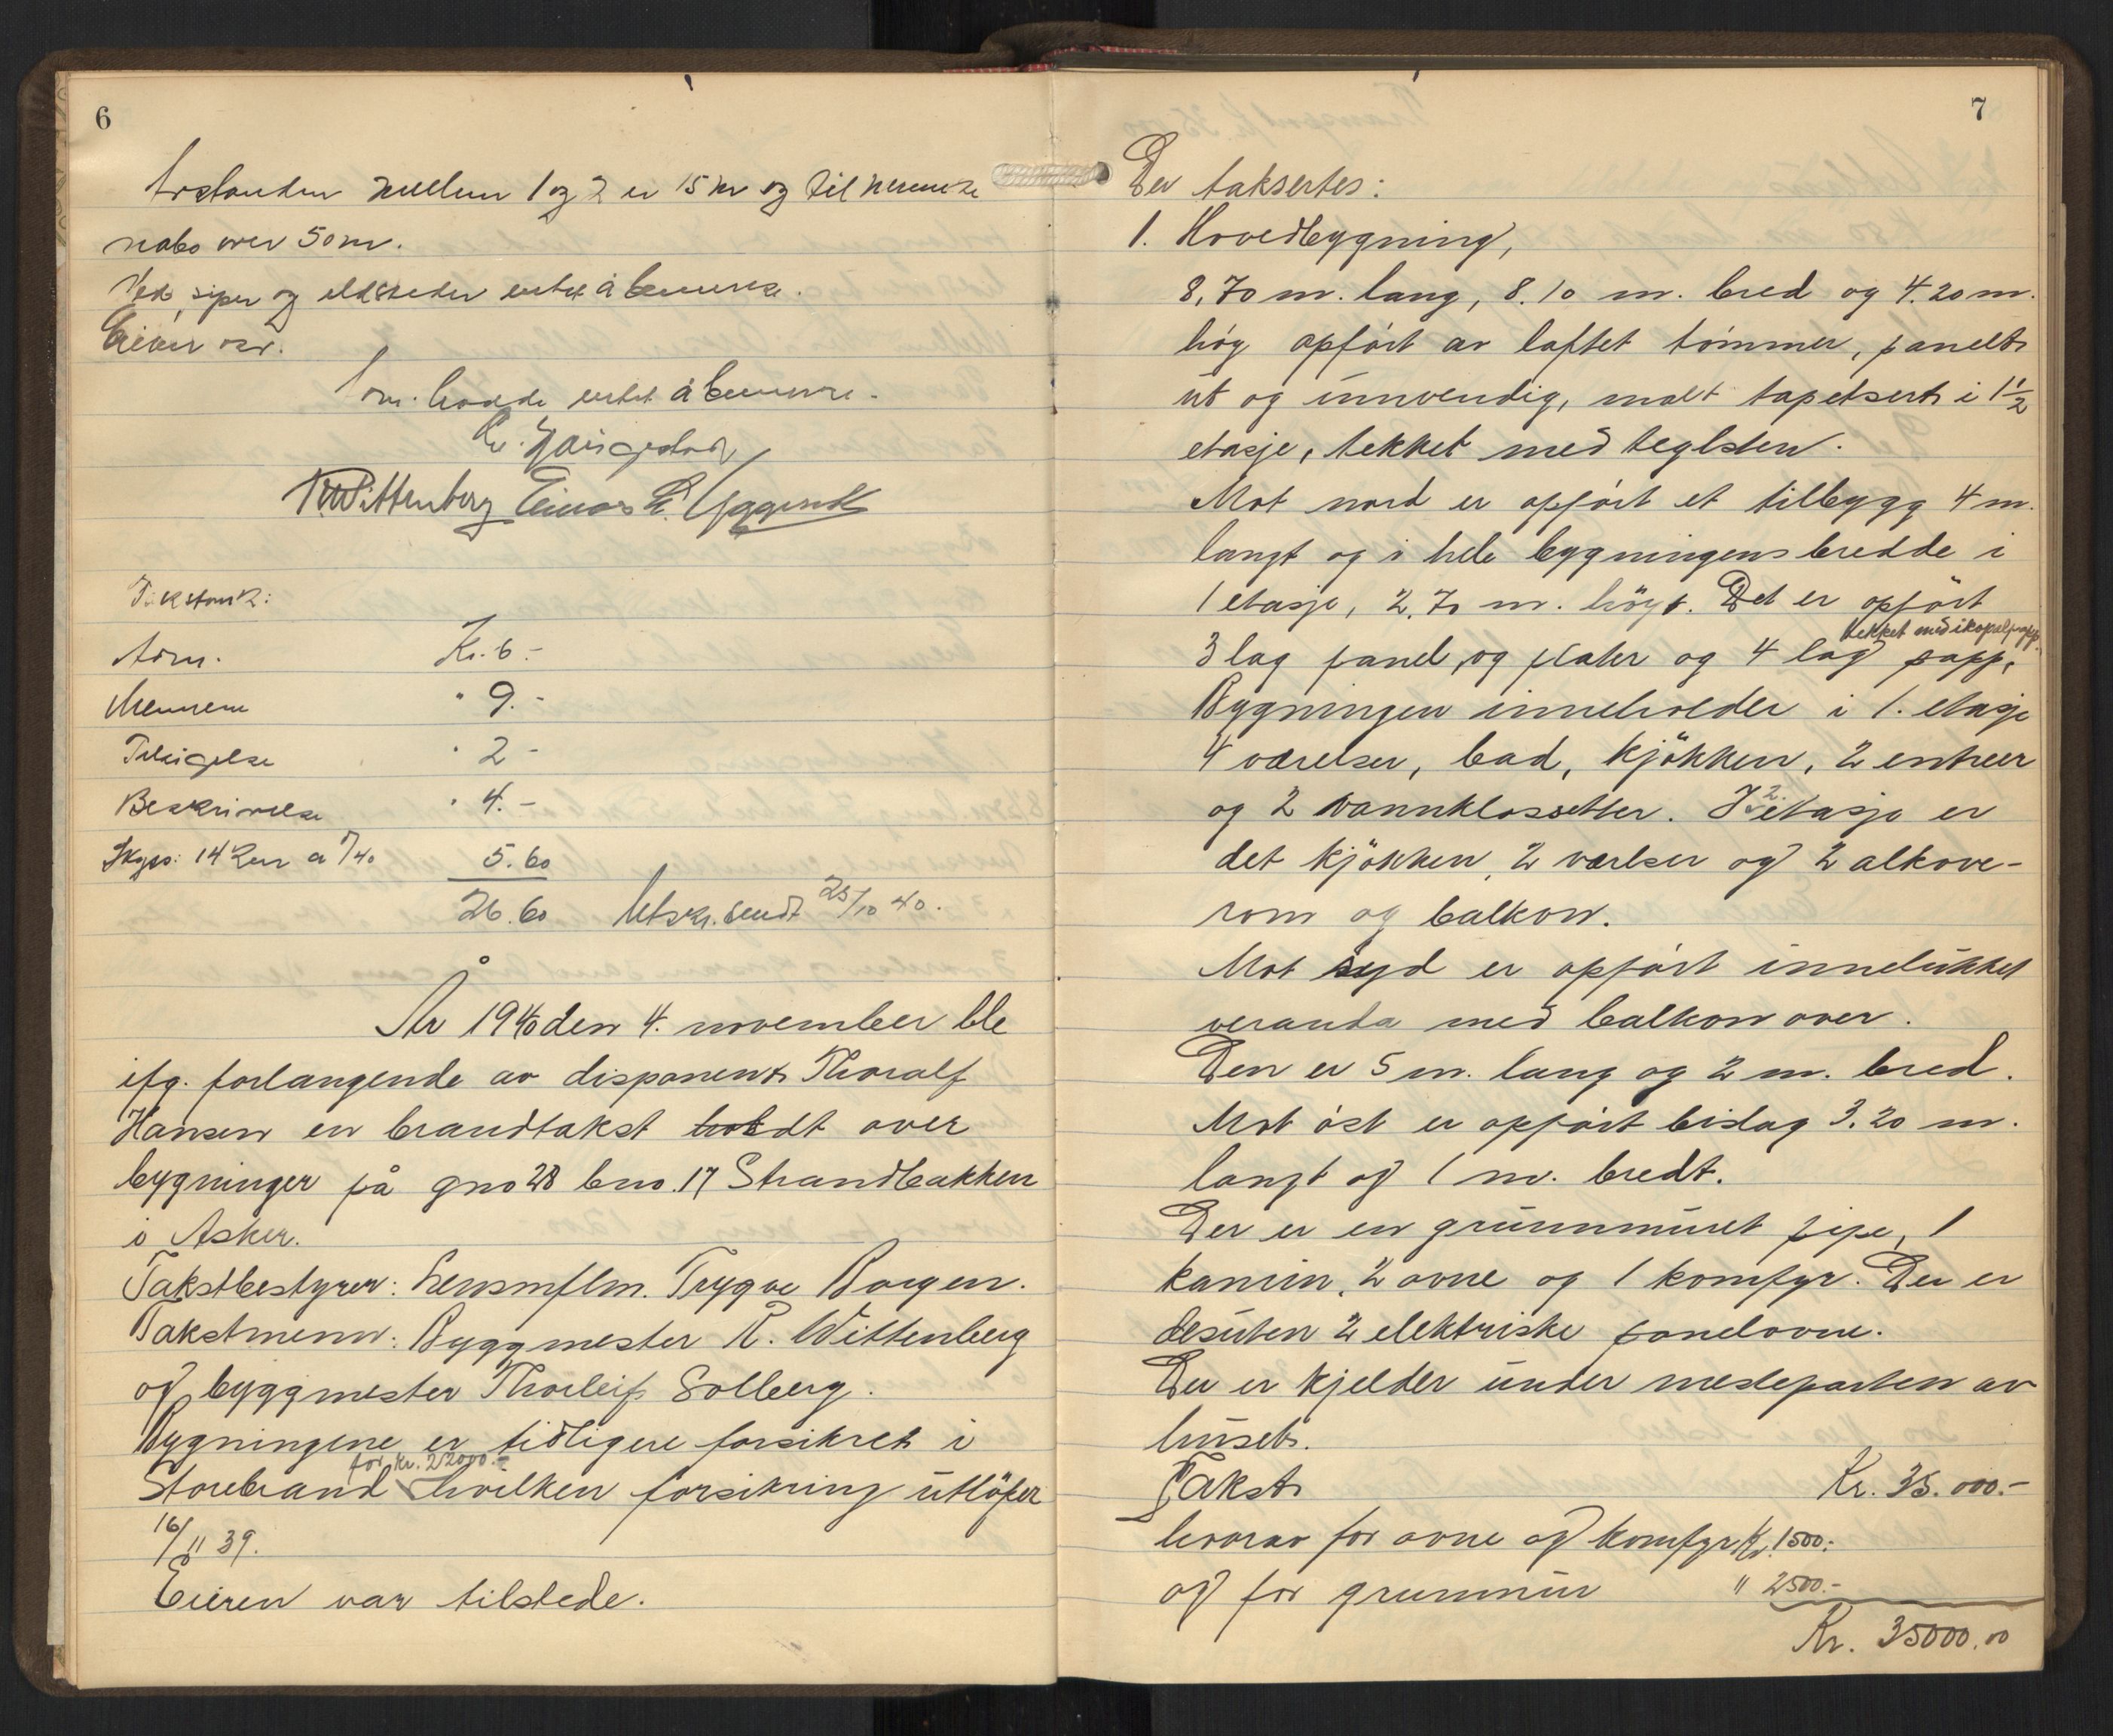 6
Avstanden mellem 1 og 2 er 15 m og til nermeste
nabo over 50 m.
Ved piper og eldsteder intet å bemerke.
Eieren var.
som hadde intet å bemerke.
R Wittenberg Einar
Takstomk:
Adm. Kr. 6.-
Mennene " 9.-
Tilsigelse " 2 -
Beskrivelse " 4.-
Skyss: 14 km a /40 5.60
26.60 Utskr. sendt 25/10 40.
År 1940 den 4. november ble
ifg. forlangende av disponent Thoralf
Hansen en brandtakst holdt over
bygninger på gno 28 bno. 17 Strandbakken
i Asker.
Takstbestyrer: Lensmflm. Trygve Borgen.
Takstmenn: Byggmester R. Wittenberg
og byggmester Thorleif Solberg.
Bygningene er tidligere forsikret i
for kr. 22000.-
Storebrand hvilken forsikring utløper
16/11 39.
Eieren var tilstede.
7
Der taksertes:
1. Hovedbygning,
8,70 m. lang, 8.10 m. bred og 4.20 m.
høg opført av laftet tømmer, panelt
ut og innvendig, malt tapetsert i 1 1/2
etasje, tekket med teglsten.
Mot nord er opført et tilbygg 4 m.
langt og i hele bygningens bredde i
1 etasje, 2.70 m. høgt. Det er opført
tekket med ikopalpapp.
3 lag panel, og plater og 4 lag papp,
Bygningen inneholder i 1. etasje
4 værelser, bad, kjøkken, 2 entreer
og 2 vannklossetter. I 2. etasje er
det kjøkken, 2 værlser og 2 alkove-
rom og balkon.
Mot syd er opført innelukket
veranda med balkon over.
Den er 5 m. lang og 2 m. bred.
Mot øst er opført bislag 3.20 m.
langt og 1 m. bredt.
Der er en grunnmuret pipe, 1
kamin, 2 ovne og 1 komfyr. Der er
desuten 2 elektriske panelovne.
Der er kjelder under mesteparten av
huset.
Takst Kr. 35.000.-
hvorav for ovne og komfyr Kr. 1500:
og for grunmur " 2500.-
Kr. 35000.00